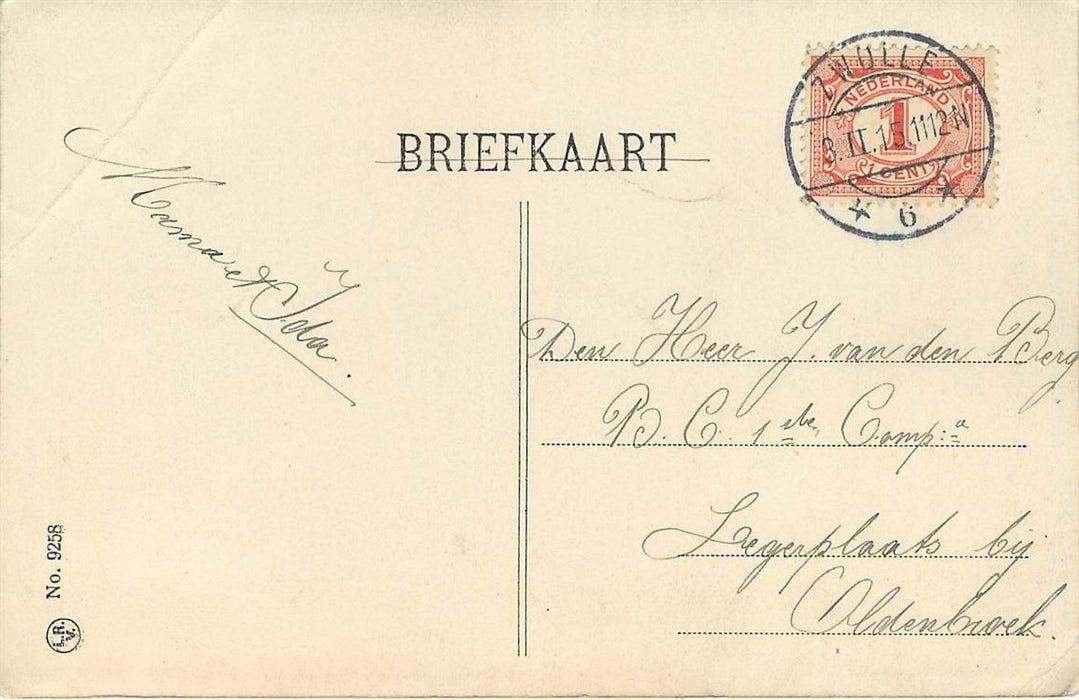 BRIEFKAART
ZWOLLE
8.II.15.1112N
6
NEDERLAND
1
CENT
Mama et Ida.
Den Heer J. van den Berg
B. C. 1ste Comp:a
Legerplaats bij
Oldenbroek.
No. 9258
L.R.
V.